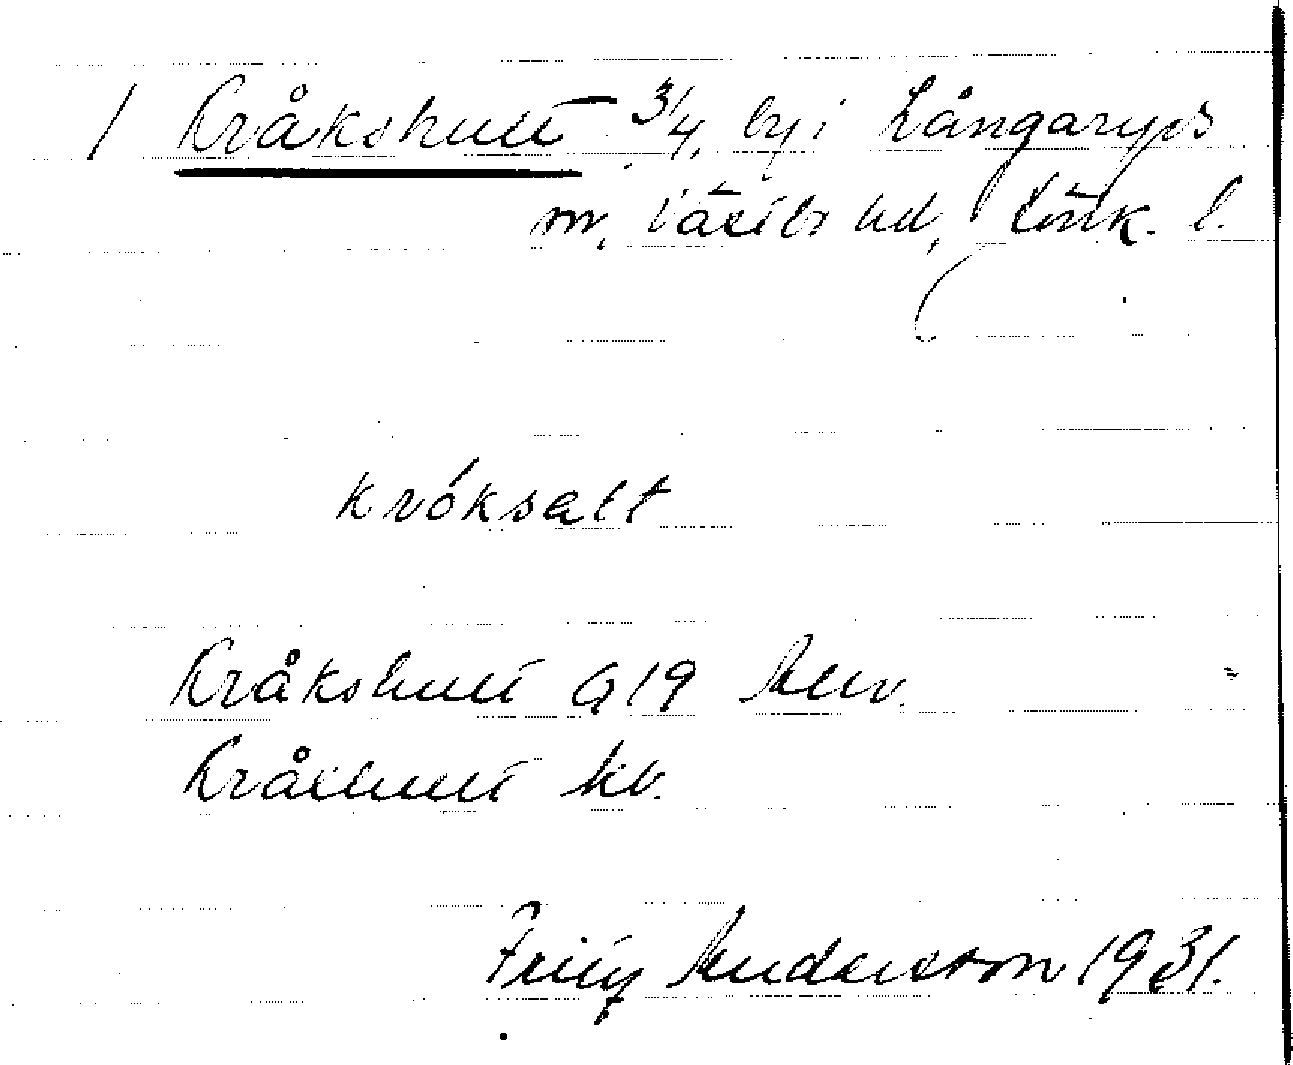 1 Kråkshult 3/4, by i Långaryds
sn, Västbo hd, Jönk. l.
króksält
Kråkshult G 19 Aerv.
Kråkhult kb.
Fritz Andersson 1931.